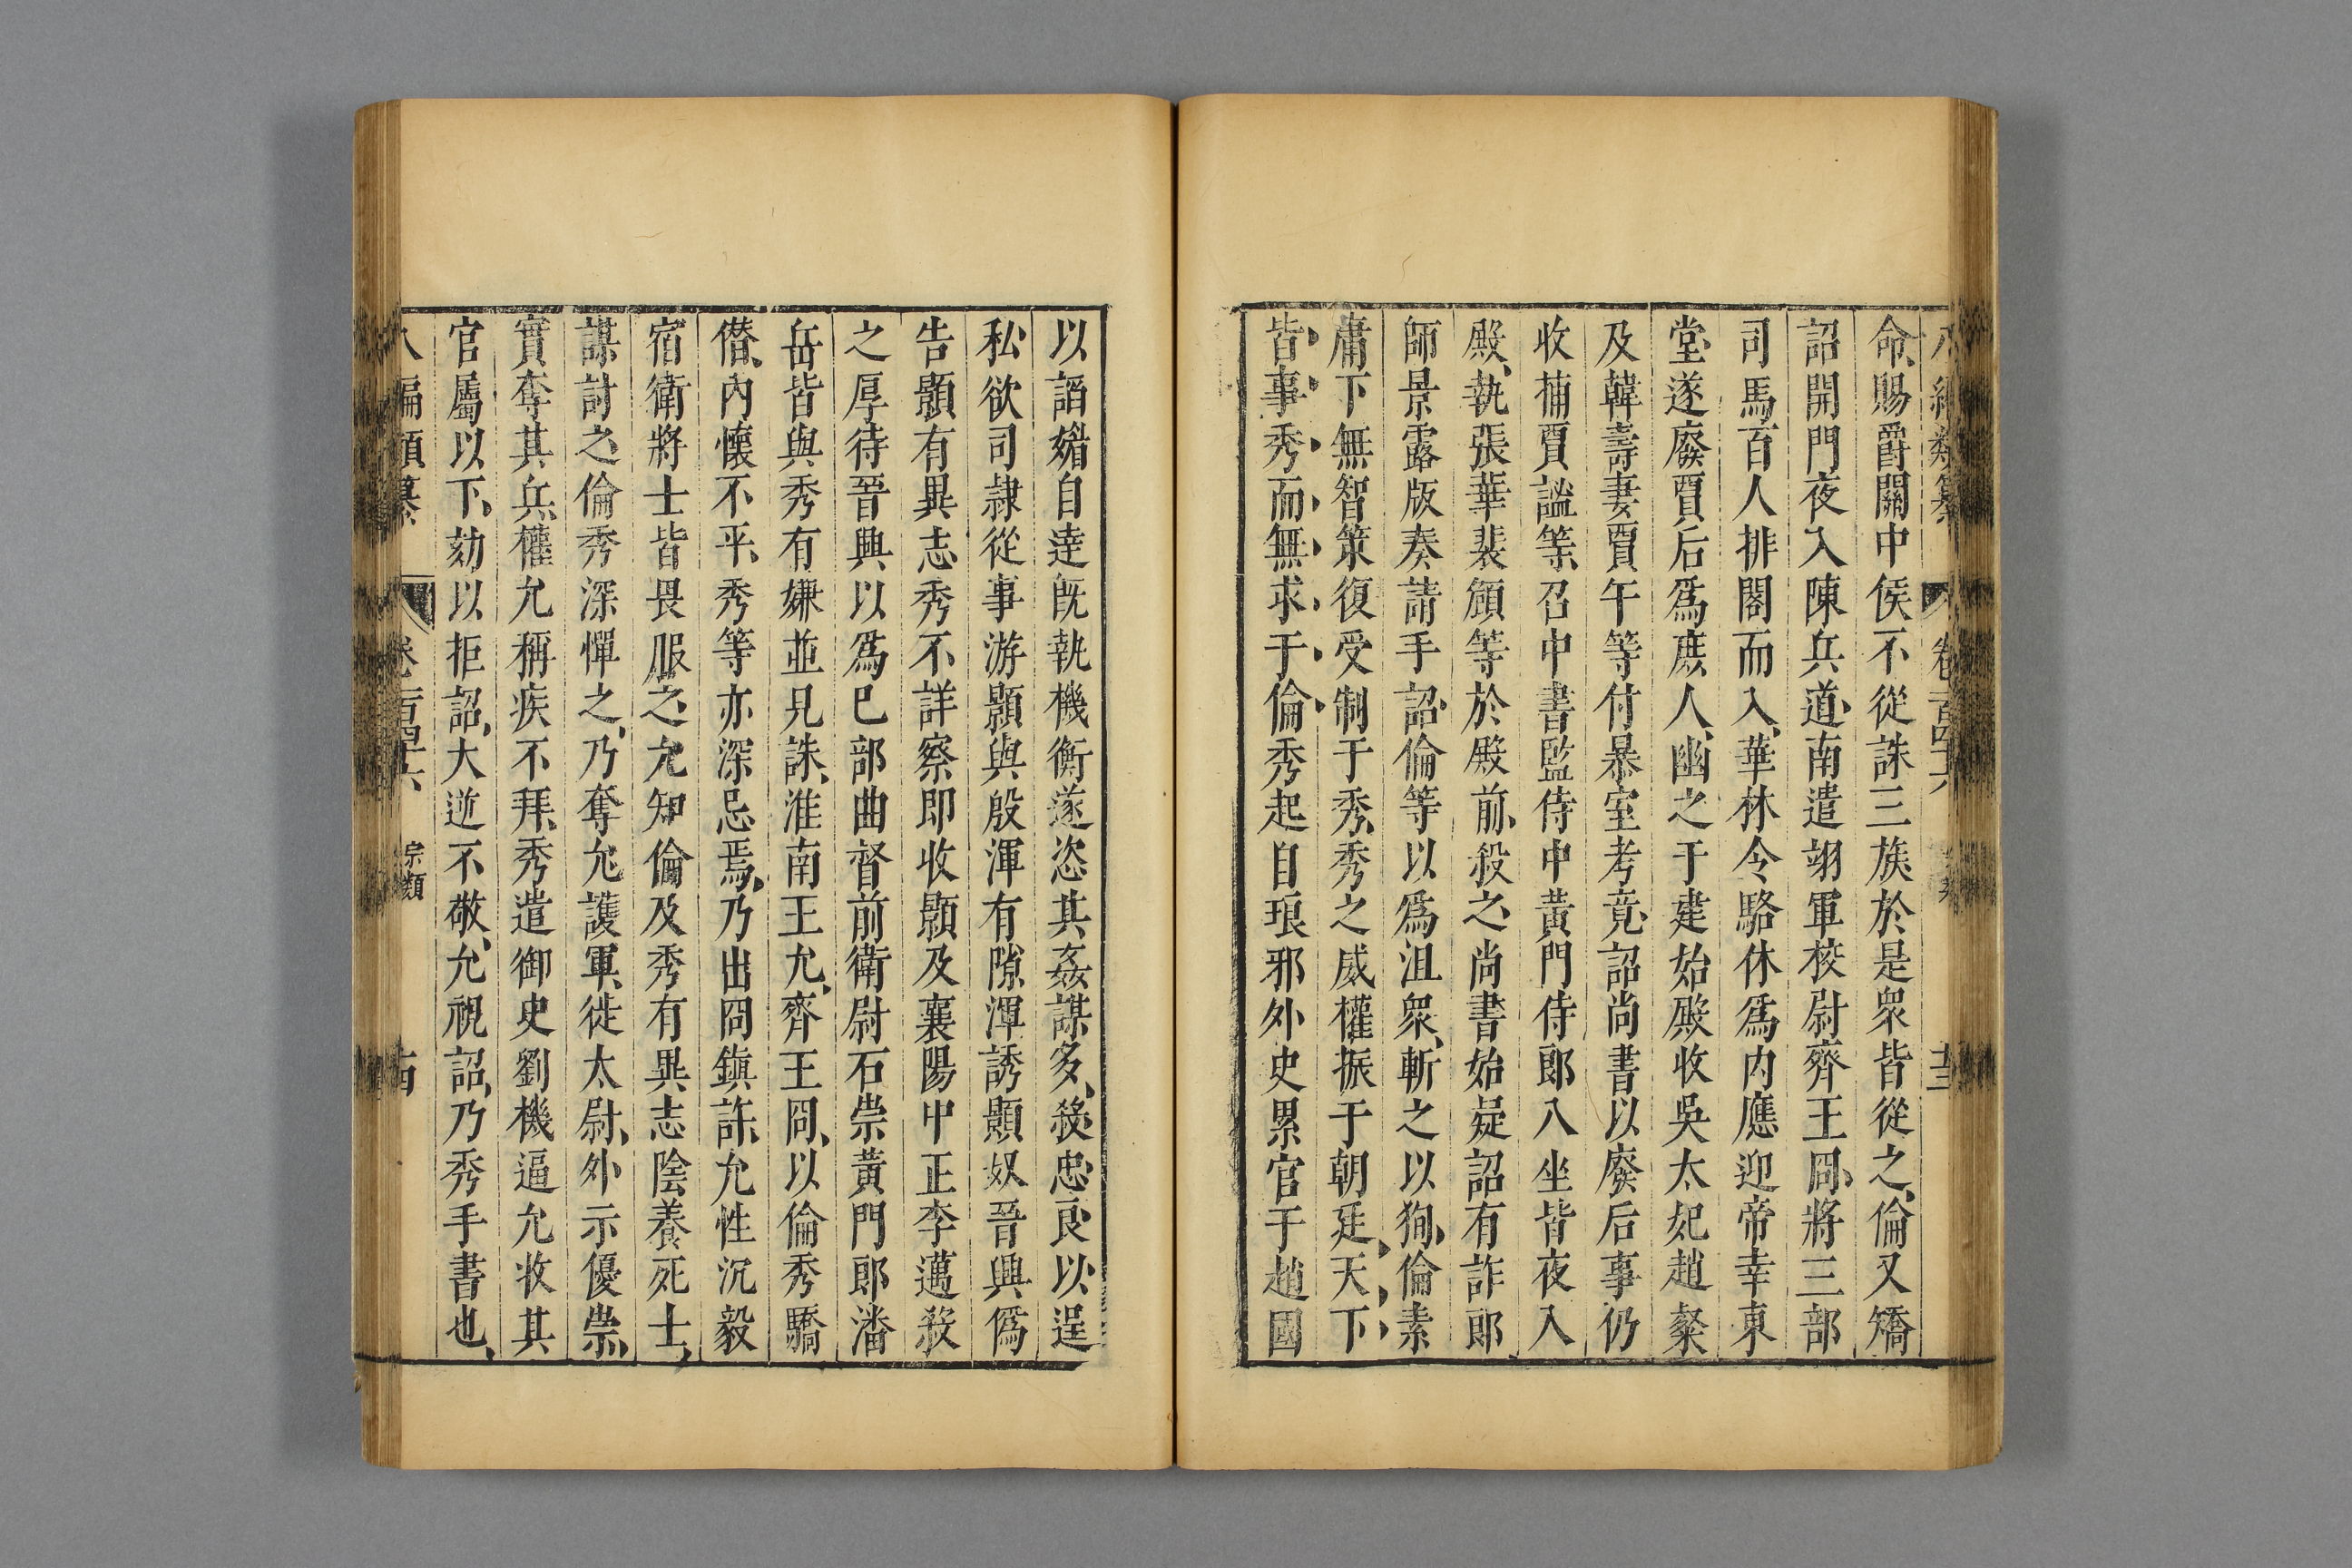 八編類纂 卷一百四十六 宗類 十三
命、賜爵關中侯不從誅三族於是衆皆從之、倫又矯
詔開門夜入陳兵道南遣翊軍校尉齊王冏、將三部
司馬百人排閤而入、華林令駱休爲内應迎帝幸東
堂、遂廢賈后爲庶人、幽之于建始殿收吳太妃趙粲
及韓壽妻賈午等付暴室考竟、詔尚書以廢后事仍
收捕賈謐等、召中書監侍中黃門侍郎八坐皆夜入
殿、執張華裴頠等於殿前、殺之、尚書始疑詔有詐郎
師景露版奏請手詔、倫等以爲沮衆、斬之以狥、倫素
庸下無智策復受制于秀、秀之威權振于朝廷、天下
皆事秀而無求于倫、秀起自琅邪外史累官于趙國
以謟媚自達既執機衡遂恣其姦謀多、殺忠良以逞
私欲司隷從事游顥與殷渾有隙渾誘顥奴晉興僞
告顥有異志、秀不詳察即收顥及襄陽中正李邁殺
之厚待晉興以爲已部曲督前衛尉石崇黃門郎潘
岳皆與秀有嫌並見誅、淮南王允、齊王冏、以倫秀驕
僣、内懷不平、秀等亦深忌焉、乃出冏鎭許、允性沉毅
宿衛將士皆畏服之、允知倫及秀有異志陰養死士、
謀討之、倫秀深憚之、乃奪允護軍、徙太尉、外示優崇、
實奪其兵權允稱疾不拜、秀遣御史劉機逼允收其
官屬以下、劾以拒詔、大逆不敬、允視詔、乃秀手書也、
八編類纂 卷一百四十六 宗類 十四